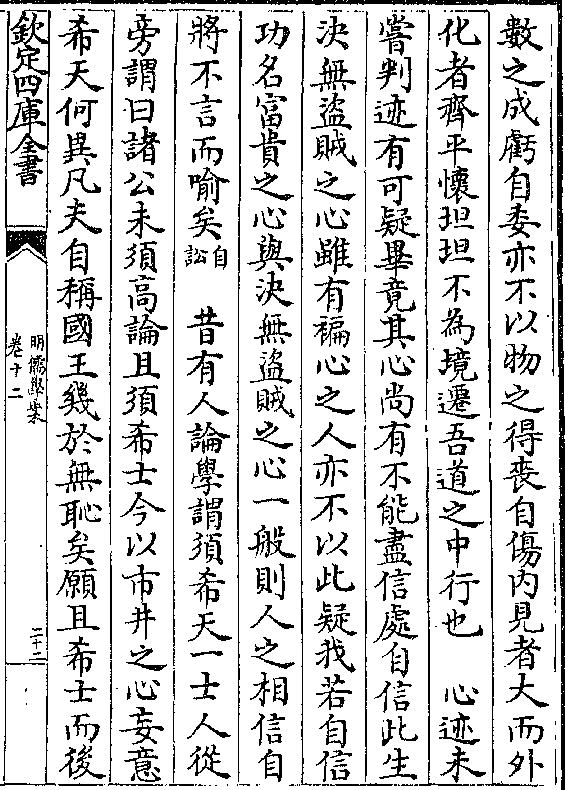 數之成虧自委亦不以物之得喪自傷内見者大而外
化者齊平懷坦坦不為境遷吾道之中行也　心迹未
嘗判迹有可疑畢竟其心尚有不能盡信處自信此生
決無盜賊之心雖有褊心之人亦不以此疑我若自信
功名富貴之心與決無盜賊之心一般則人之相信自
將不言而喻矣自訟　昔有人論學謂須希天一士人從
旁謂曰諸公未須高論且須希士今以市井之心妄意
希天何異凡夫自稱國王幾於無恥矣願且希士而後
欽定四庫全書
明儒學案
卷十二
二十二